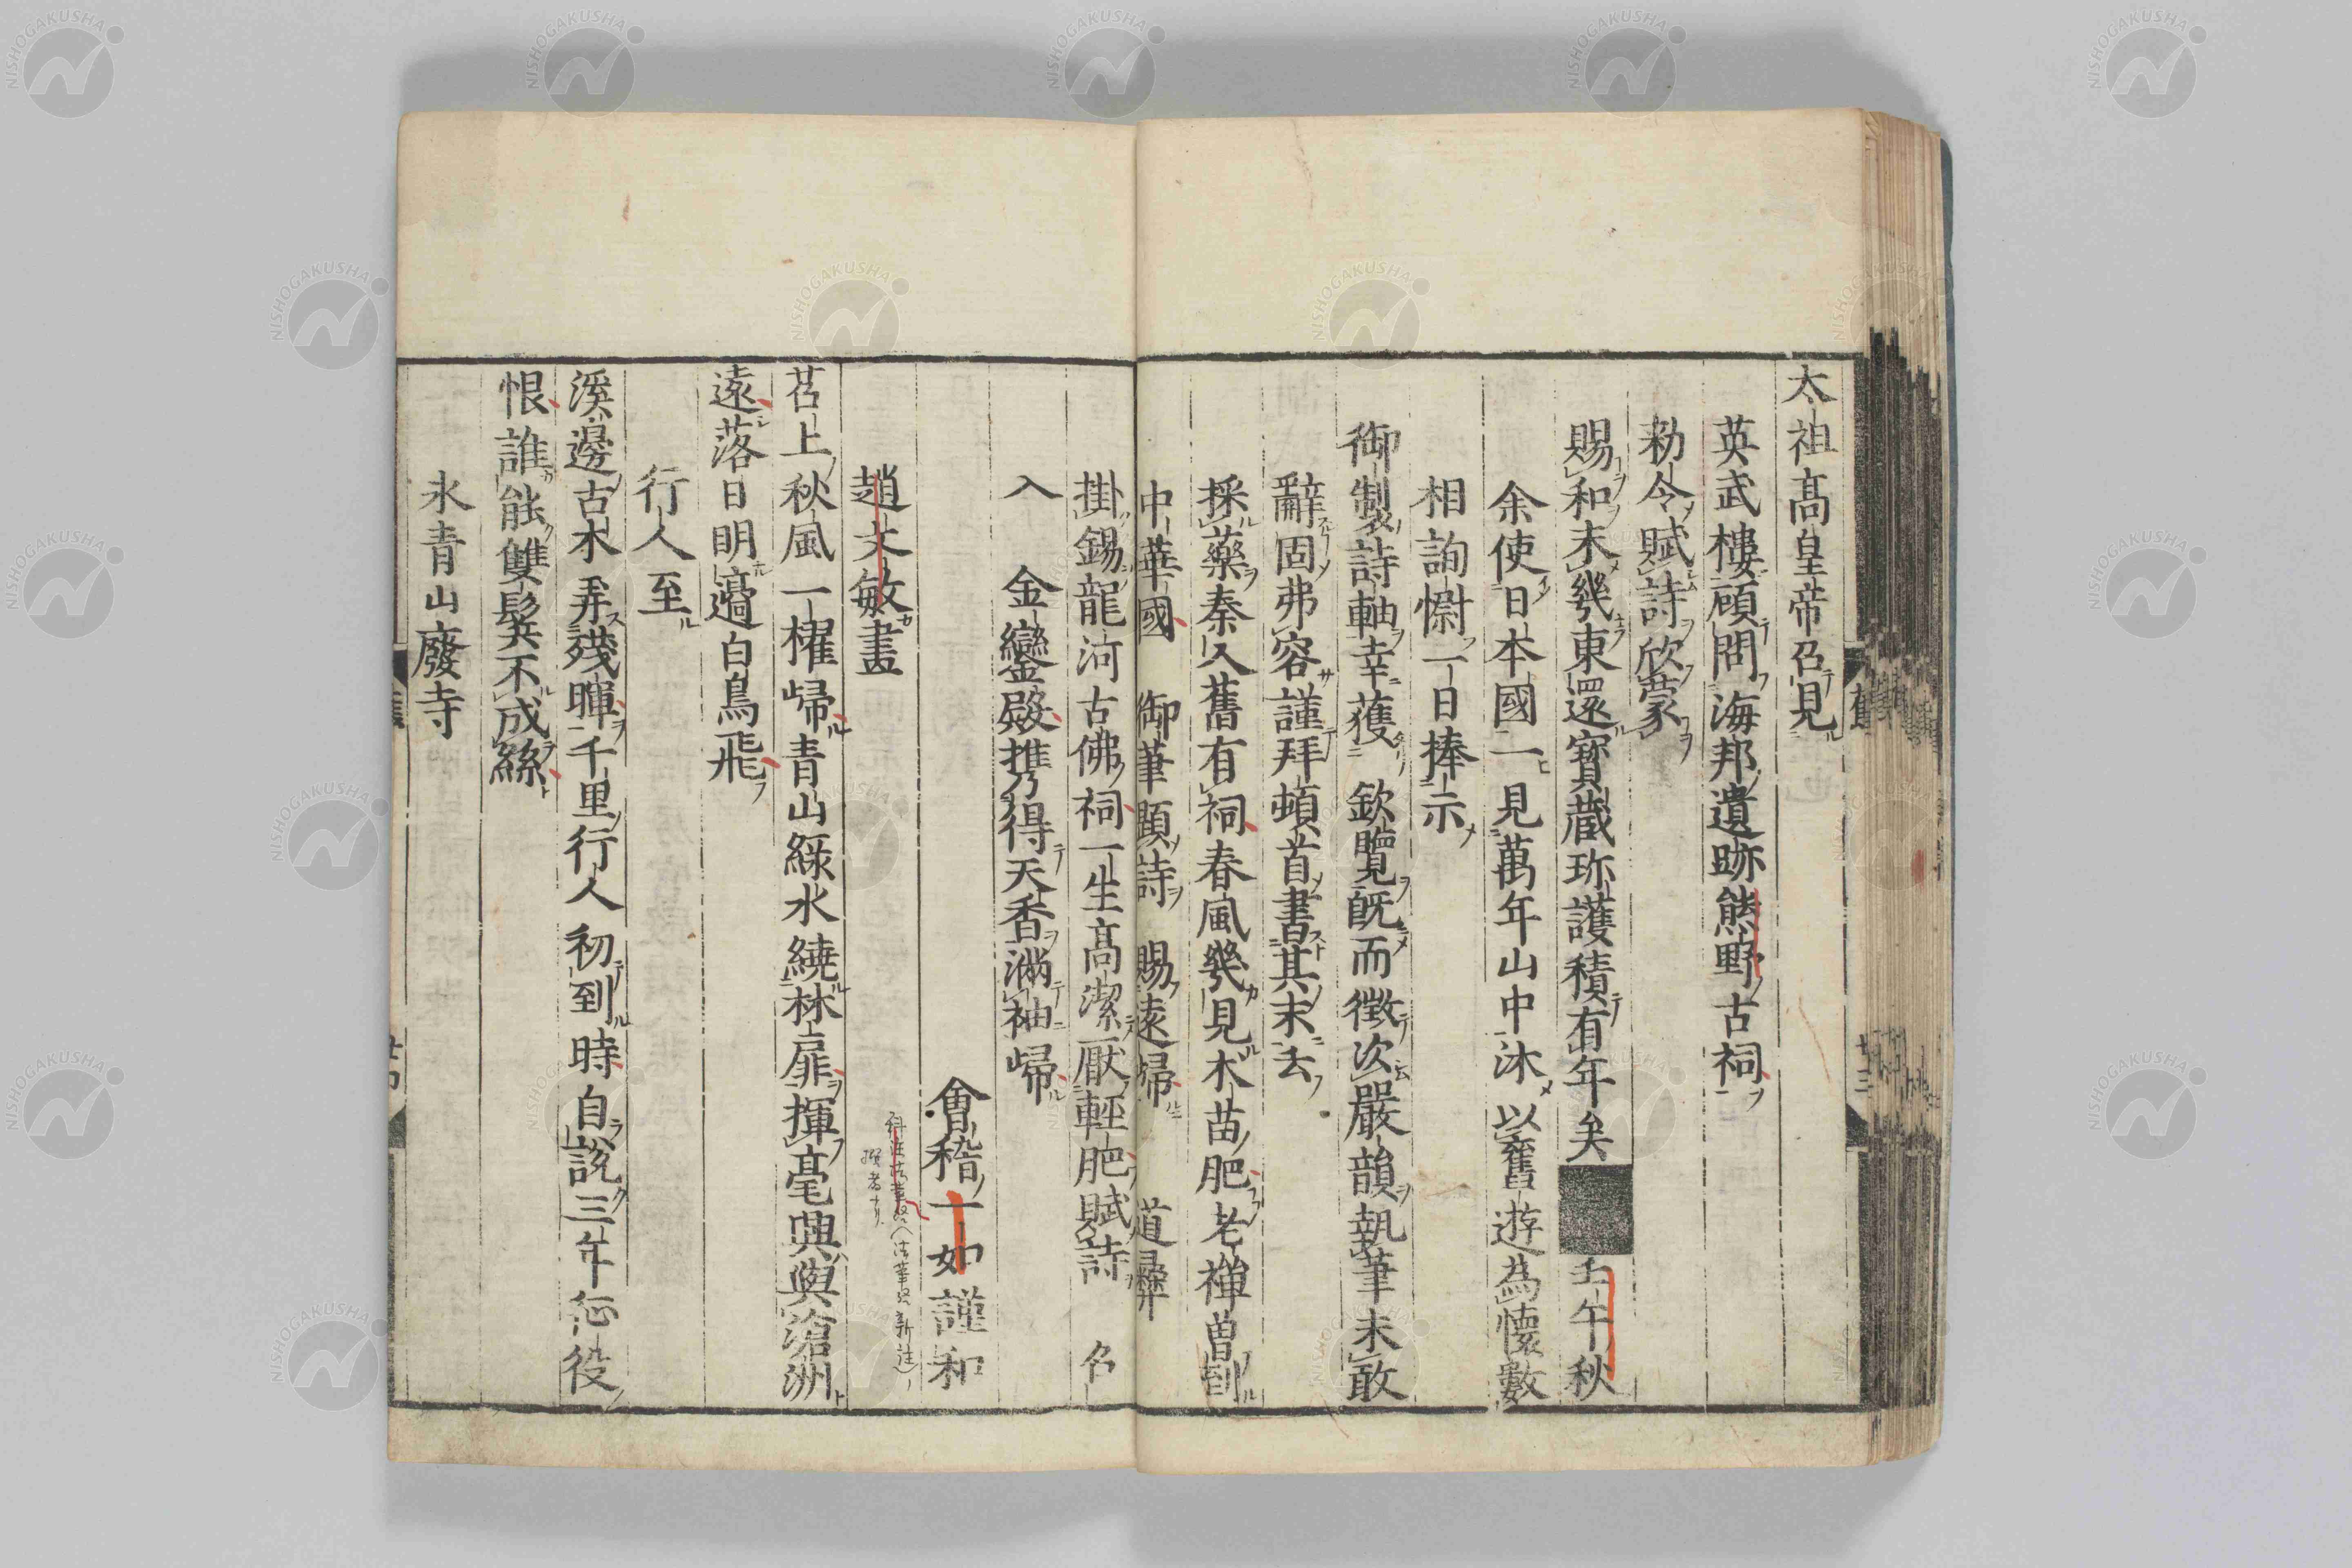 太祖髙皇帝召見
英武樓顧問海邦遺跡熊野古祠
勑令賦詩欣蒙
賜和未幾東還寳蔵珎護積有年矣 壬午秋
余使日本國一見萬年山中沐以舊遊為懷數
相詢慰一日捧示
御製詩軸幸獲欽覽旣而徵次嚴韻執筆未敢
辭固弗容謹拜頓首書其末云
採藥秦人舊有祠春風幾見木苗肥老禅曽到
中華國 御筆題詩 賜遠歸 道彛
掛錫龍河古佛祠一生髙潔厭輕肥賦詩 名
入 金鑾殿携得天香滿袖歸
會稽一如謹和
趙文敏畫
苕上秋風一櫂歸青山綠水繞林扉揮毫興與滄洲
遠落日明邉白鳥飛
行人至
溪邊古木弄殘暉千里行人初到時自說三年征役
恨誰能雙鬂不成絲
氷青山廢寺
NISHOGAKUSHA